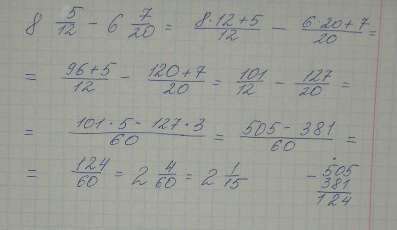 8 5/12 - 6 7/20 = (8·12+5)/12 - (6·20+7)/20 =
= (96+5)/12 - (120+7)/20 = 101/12 - 127/20 =
= (101·5 - 127·3)/60 = (505 - 381)/60 =
= 124/60 = 2 4/60 = 2 1/15
- 505
381
124